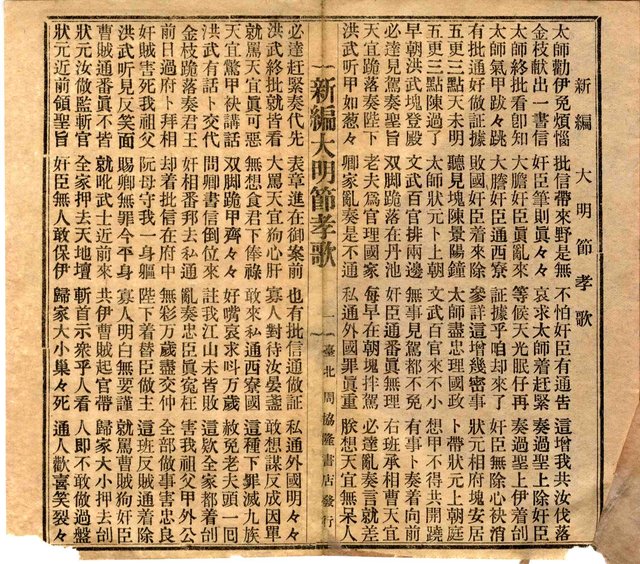 新編 大明節孝歌
太師勸伊免煩惱 批信帶來野是無 不怕奸臣有通告 這增我共汝伐落
金枝献出一書信 奸臣筆則眞々々 哀求太師着赶緊 奏過聖上除奸臣
太師終批看卽知 大膽奸臣眞亂來 等候天光眠仔再 奏過聖上伊着刣
太師氣甲跋々跳 大膽奸臣通西寮 証據乎咱却來了 奸臣無除心袂消
有批通好做証據 敗國奸臣着來除 參詳這增幾密事 狀元相府塊安居
五更三點天未明 聽見塊陳景陽鐘 太師盡忠理國政 卜帶狀元上朝庭
五更三點陳過了 太師狀元卜上朝 文武百官來不小 想甲不得共開蹺
早朝洪武塊登殿 文武百官排兩邊 無事見駕都不免 有事卜奏着向前
必達見駕奏聖旨 双脚跪落在丹池 奸臣通番眞無理 右班承相曹天宜
天宜跪落奏陛下 老夫爲官理國家 每早在朝塊拌駕 必達亂奏言就差
洪武听甲如葱々 卿家亂奏是不通 私通外國罪眞重 朕想天宜無呆人
新編大明節孝歌 一 臺北 周協隆書店發行
必達赶緊奏代先 表章進在御案前 也有批信通做証 私通外國明々々
洪武終批就皆看 大罵天宜狗心肝 寡人對待汝晏盞 敢想謀反成因單
就罵天宜眞可惡 無想食君下俸祿 敢來私通西寮國 這種下罪滅九族
天宜驚甲袂講話 双脚跪甲齊々々 好嘴哀求叫万歲 赦免老夫頭一囘
洪武有話卜交代 問卿書信倒位來 註我江山未皆敗 這欵全家都着刣
金枝跪落奏君王 奸相番邦去私通 乱奏忠臣眞寃枉 害我祖父甲外公
前日過府卜拜相 却着批信在府中 無彩万歲盡交仲 全部做事害忠良
奸賊害死我祖父 阮母守我一身軀 陛下着替臣做主 這班反賊通着除
洪武听見反笑面 賜卿無罪今平身 寡人明白無要謹 就罵曹賊狗奸臣
曹賊通番眞不皆 就叱武士近前來 共伊曹賊起官帶 歸家大小押去刣
狀元汝做監斬官 全家押去天地壇 斬首示衆乎人看 人卽不敢做過盤
狀元近前領聖旨 奸臣無人敢保伊 歸家大小巢々死 通人歡喜笑裂々